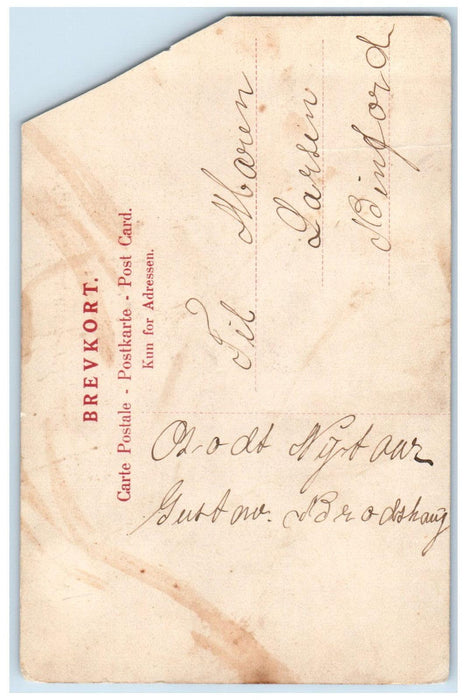 BREVKORT.
Carte Postale - Postkarte - Post Card.
Kun for Adressen.
Til Maren
Larsen
Binford
Et godt Nyt aar
Gustav. Brodshaug